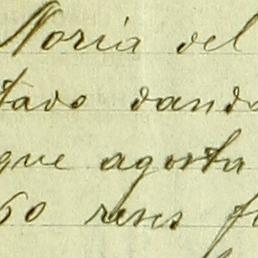 Noria del
tado dand
que agosta
60 reses f